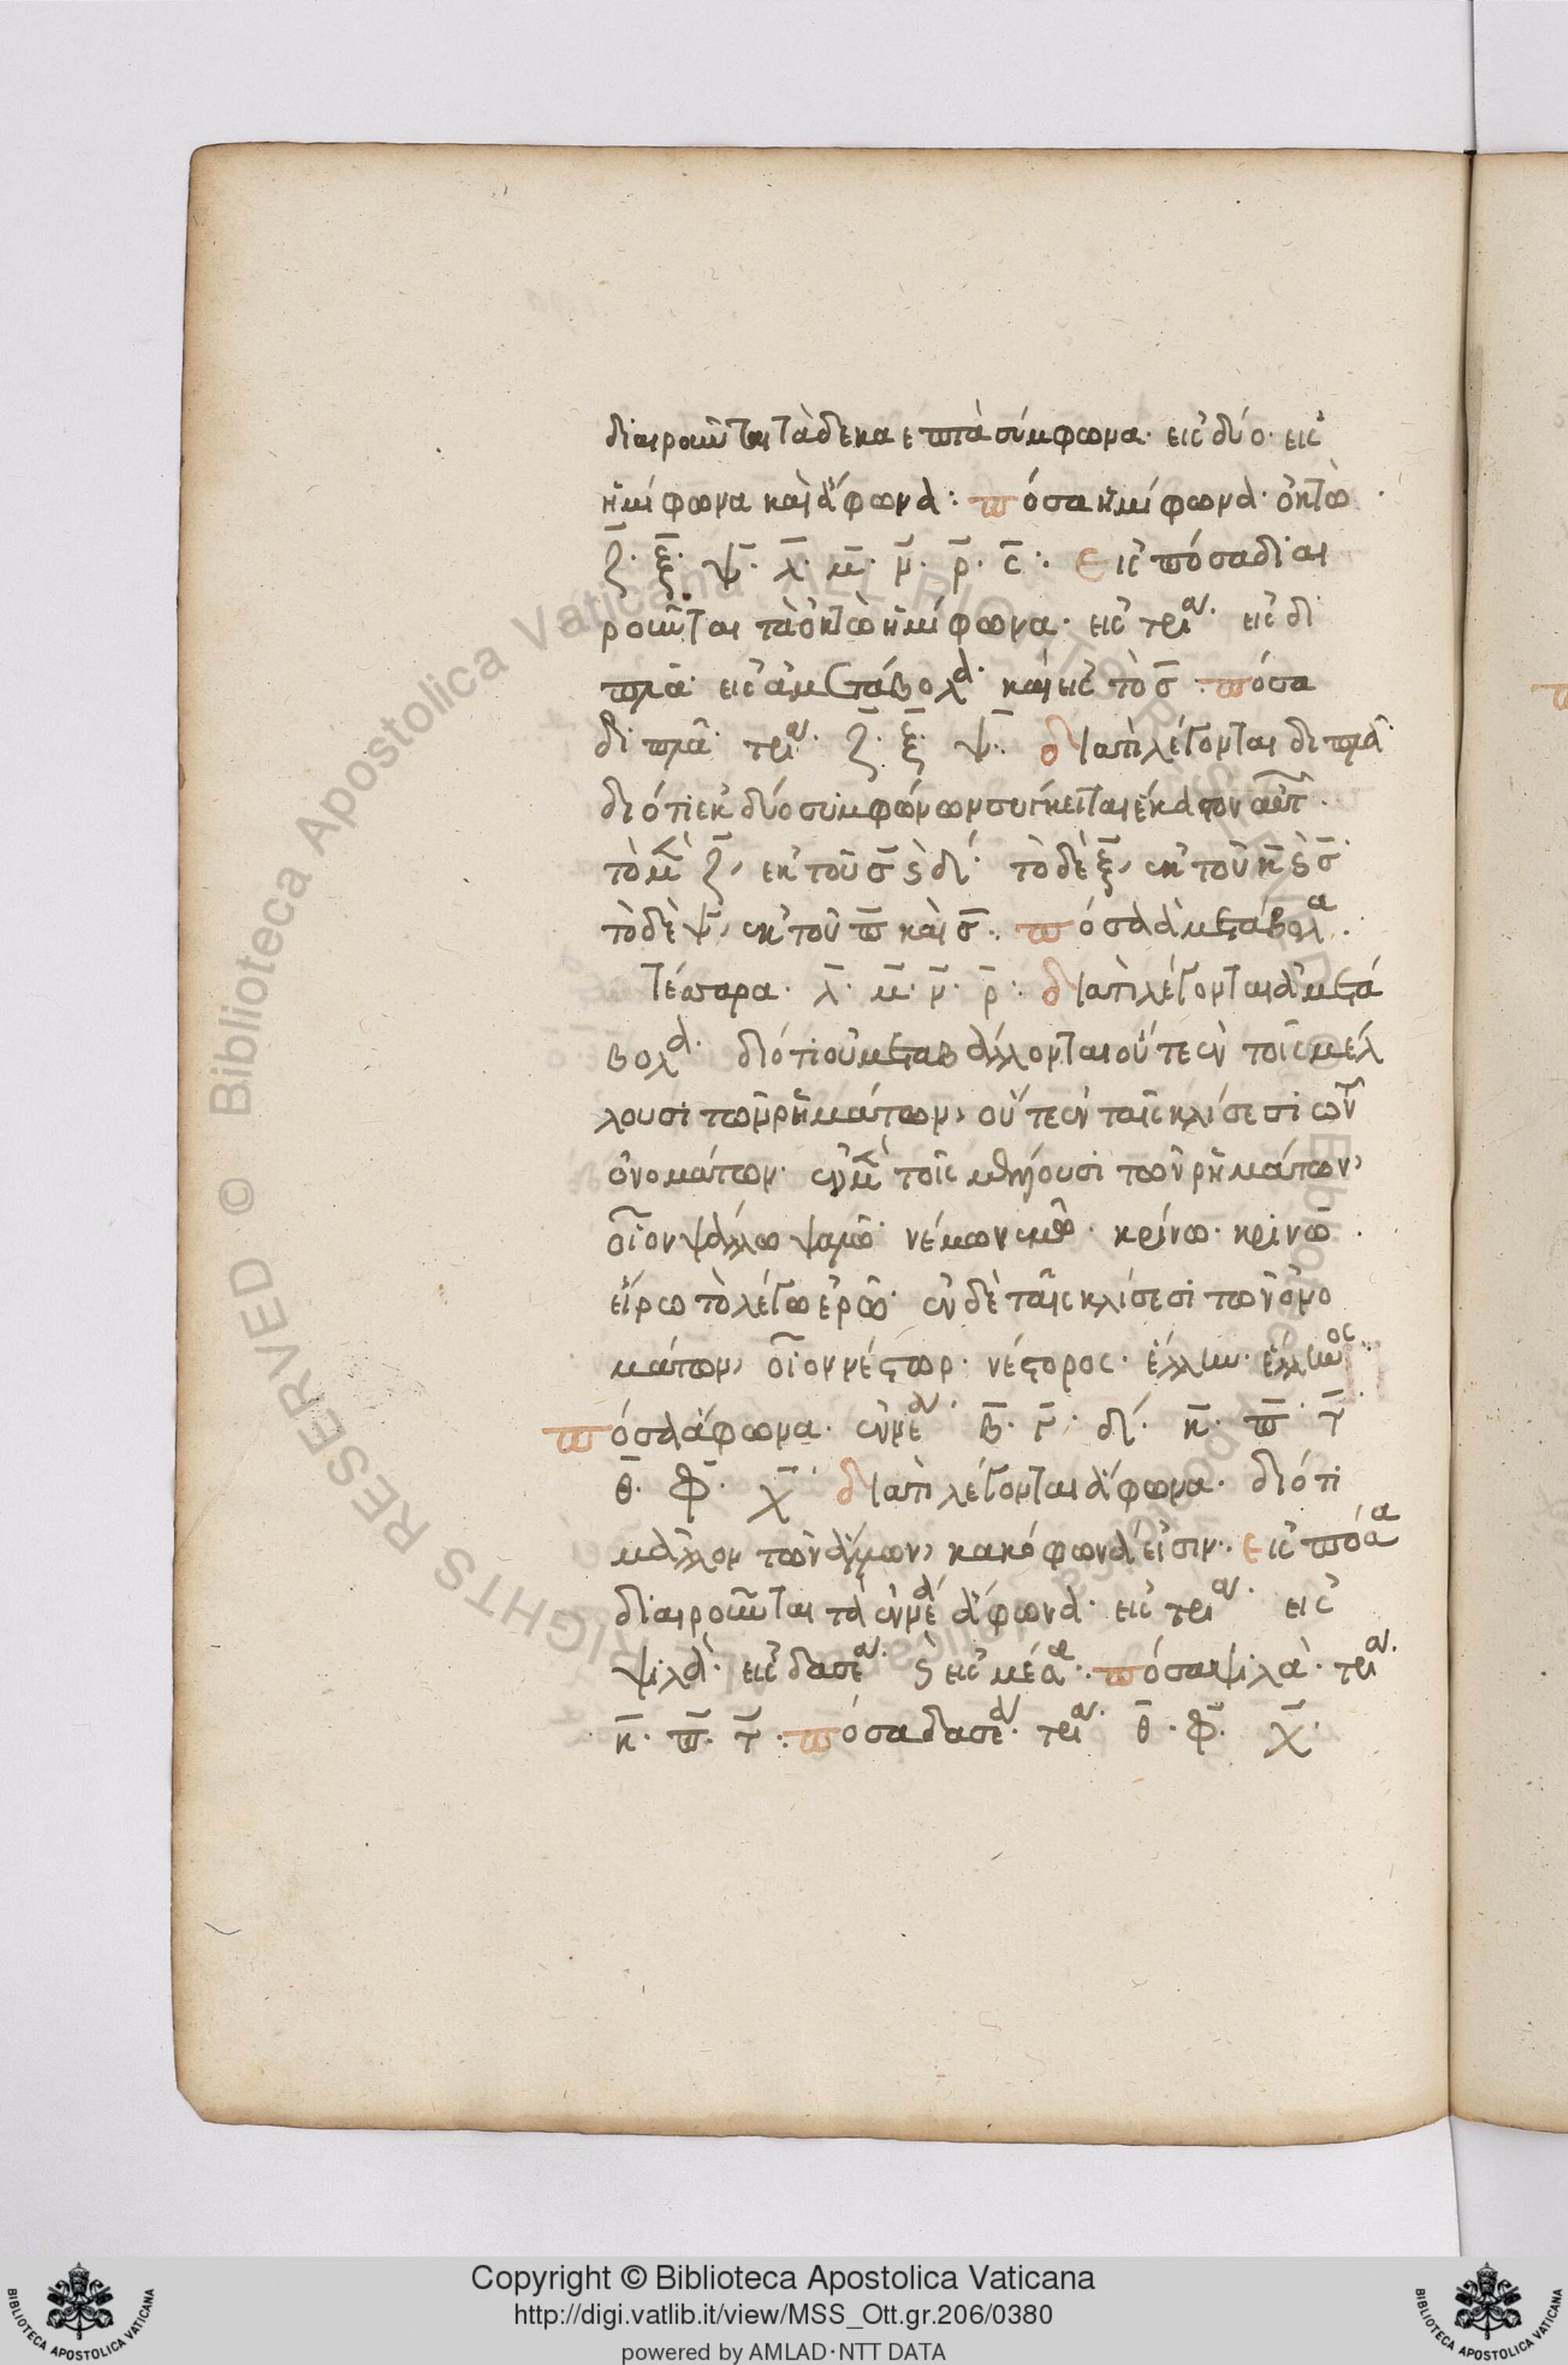 διαιροῦνται τὰ δεκαεπτὰ σύμφωνα· εἰς δύο· εἰς
ἡμίφωνα καὶ ἄφωνα: πόσα ἡμίφωνα· ὀκτὼ·
ζ̅· ξ̅· ψ̅· λ̅· μ̅· ν̅· ρ̅· ς̅: εἰς πόσα διαι
ροῦνται τὰ ὀκτὼ ἡμίφωνα· εἰς τρία· εἰς δι
πλᾶ· εἰς ἀμετάβολα· καὶ εἰς τὸ σ̅· πόσα
διπλᾶ· τρία· ζ̅· ξ̅· ψ̅· διατὶ λέγονται διπλᾶ·
διότι ἐκ δύο συμφώνων σύγκειται ἕκαστον αὐτ
τὸ μὲν ζ̅, ἐκ τοῦ σ̅ ϗ δ̅· τὸ δὲ ξ̅, ἐκ τοῦ κ̅ ϗ σ̅·
τὸ δὲ ψ̅, ἐκ τοῦ π̅ καὶ σ̅· πόσα ἀμετάβολα·
τέσσαρα· λ̅· μ̅· ν̅· ρ̅: διατὶ λέγονται ἀμετά
βολα· διότι οὐ μεταβάλλονται οὔτε ἐν τοῖς μέλ
λουσι τῶν ῥημάτων, οὔτε ἐν ταῖς κλίσεσι τῶν
ὀνομάτων· ἐν μὲν τοῖς μέλλουσι τῶν ῥημάτων,
οἷον ψάλλω ψαλῶ· νέμω νεμῶ· κρίνω· κρινῶ·
εἴρω τὸ λέγω ἐρῶ· ἐν δὲ ταῖς κλίσεσι τῶν ὀνο
μάτων, οἷον νέστωρ· νέστορος· ἕλλην· ἕλληνος·
πόσα ἄφωνα· ἐννέα· β̅· γ̅· δ̅· κ̅· π̅· τ̅
θ̅· φ̅· χ̅· διατὶ λέγονται ἄφωνα· διότι
μᾶλλον τῶν ἄλλων, κακόφωνά εἰσιν· εἰς πόσα
διαιροῦνται τὰ ἐννέα ἄφωνα· εἰς τρία· εἰς
ψιλὰ· εἰς δασέα· ϗ εἰς μέσα· πόσα ψιλὰ· τρία·
κ̅· π̅· τ̅: πόσα δασέα· τρία· θ̅· φ̅· χ̅·
Copyright © Biblioteca Apostolica Vaticana
http://digi.vatlib.it/view/MSS_Ott.gr.206/0380
powered by AMLAD·NTT DATA
BIBLIOTECA APOSTOLICA VATICANA
BIBLIOTECA APOSTOLICA VATICANA